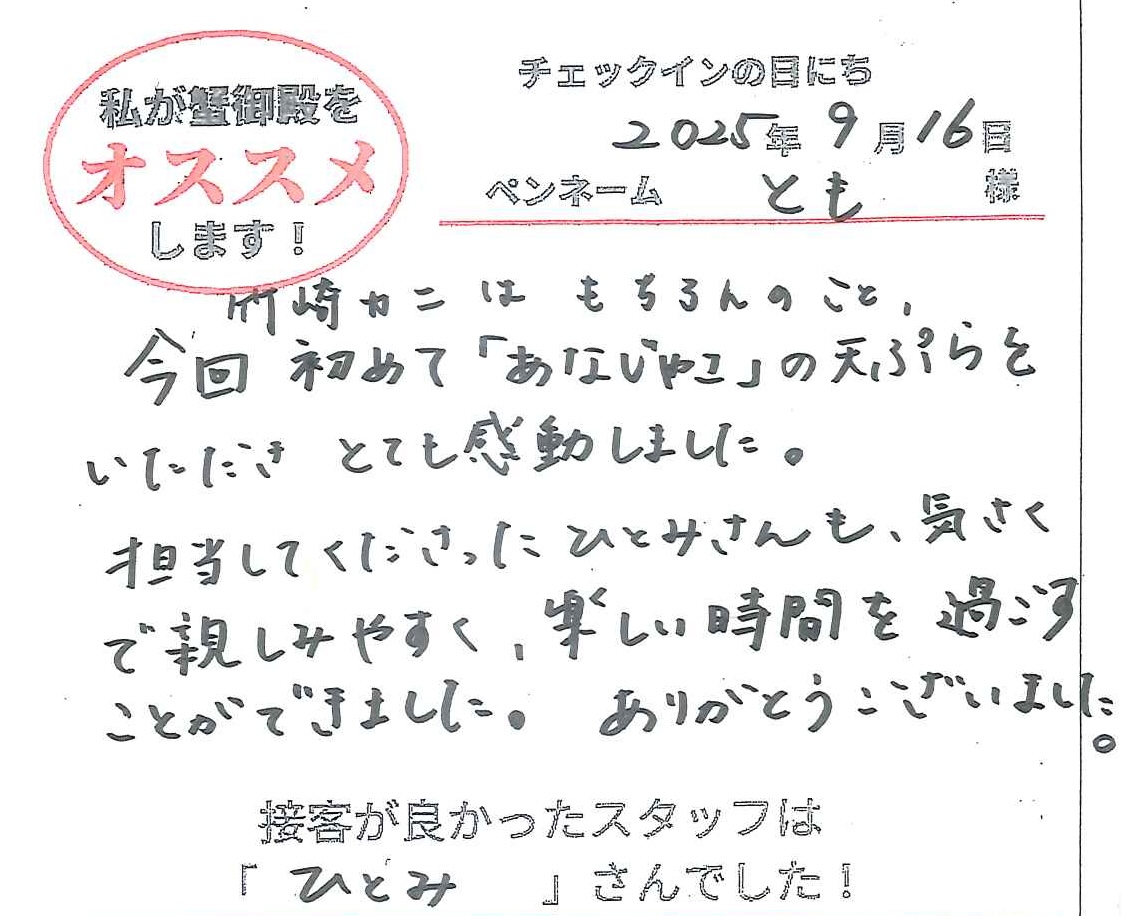 私が蟹御殿を
オススメ
します！
チェックインの日にち
2025年 9月16日
ペンネーム とも 様
竹崎カニは もちろんのこと、
今回 初めて「あなじゃこ」の天ぷらを
いただき とても感動しました。
担当してくださった ひとみさんも、気さく
で親しみやすく、楽しい時間を過ごす
ことができました。 ありがとうございました。
接客が良かったスタッフは
「 ひとみ 」さんでした！